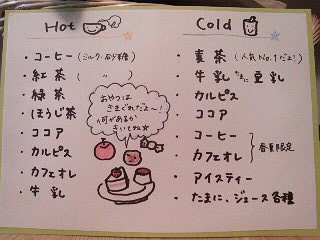 Hot
・コーヒー (ミルク・砂糖)
・紅茶 ( 〃 )
・緑茶
・ほうじ茶
・ココア
・カルピス
・カフェオレ
・牛乳
おやつは
きまぐれだよ〜
何があるか
きいてね☆
Cold
・麦茶 (人気No.1だよ!)
・牛乳 たまに 豆乳
・カルピス
・ココア
・コーヒー
・カフェオレ
春夏限定
・アイスティー
・たまに、ジュース各種